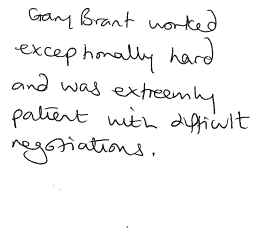 Gary Brant worked
exceptionally hard
and was extreemly
patient with difficult
negotiations.